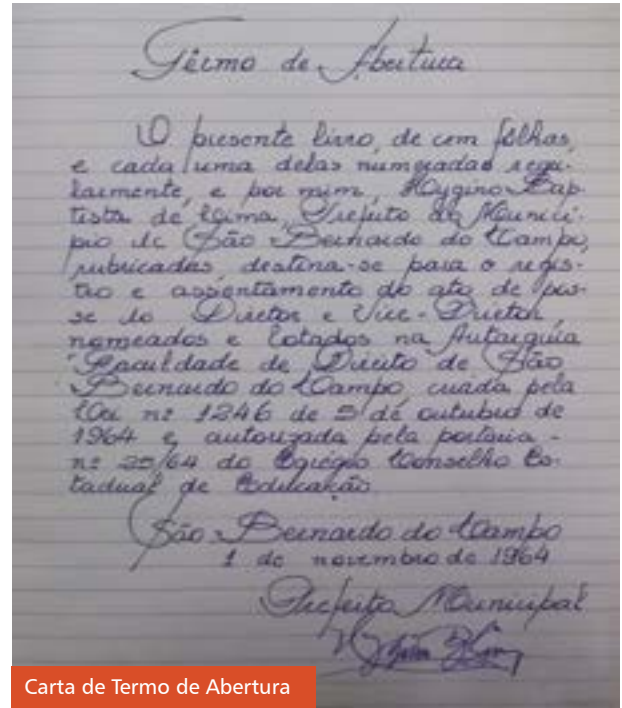 Têrmo de Abertura
O presente livro, de cem fôlhas,
e cada uma delas numeradas regu-
larmente, e por mim, Hygino Bap-
tista de Lima, Prefeito do Municí-
pio de São Bernardo do Campo,
rubricadas, destina-se para o regis-
tro e assentamento do ato de pos-
se do Diretor e Vice-Diretor,
nomeados e lotados na Autarquia
Faculdade de Direito de São
Bernardo do Campo, criada pela
Lei nº 1246 de 5 de outubro de
1964 e autorizada pela portaria -
nº 25/64 do Egrégio Conselho Es-
tadual de Educação.
São Bernardo do Campo
1 de novembro de 1964
Prefeito Municipal
Carta de Termo de Abertura